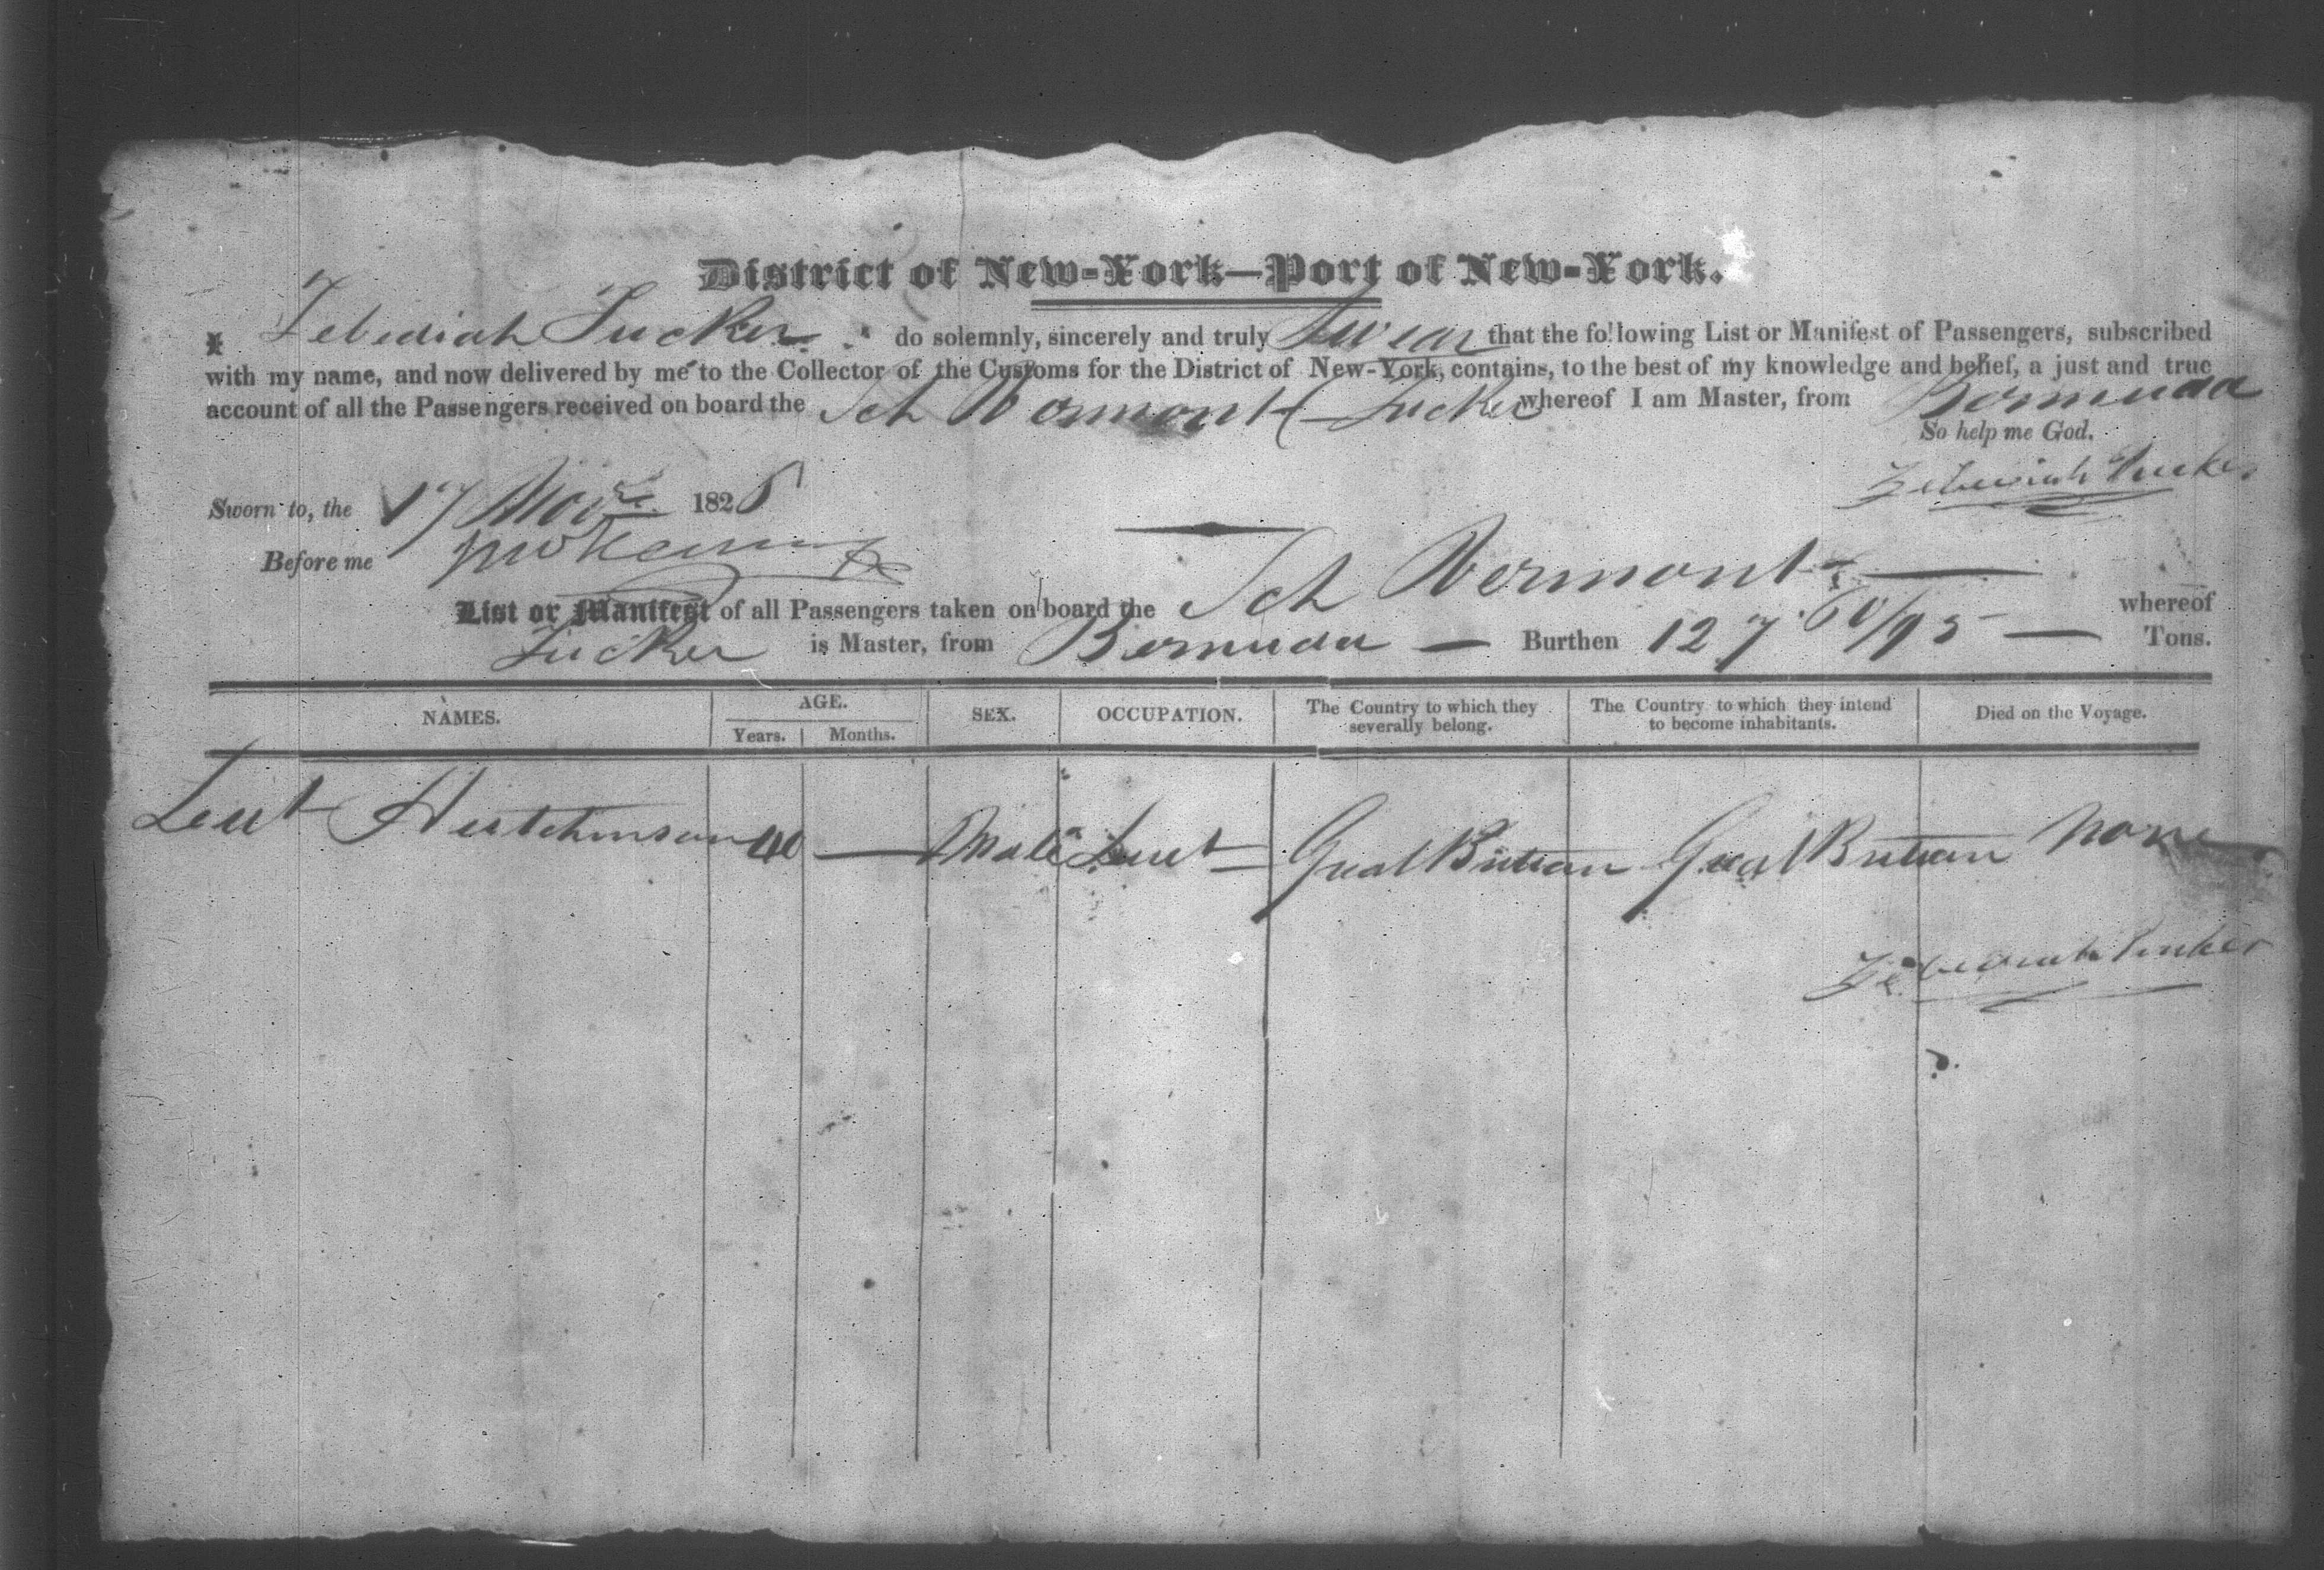 District of New-York—Port of New-York.
I Zebediah Tucker do solemnly, sincerely and truly Swear that the following List or Manifest of Passengers, subscribed
with my name, and now delivered by me to the Collector of the Customs for the District of New-York, contains, to the best of my knowledge and belief, a just and true
account of all the Passengers received on board the Sch Vermont Tucker whereof I am Master, from Bermuda
So help me God.
Zebediah Tucker
Sworn to, the 17 Nov 182
Before me
List or Manifest of all Passengers taken on board the Sch Vermont whereof
Tucker is Master, from Bermuda — Burthen 127 60/95 — Tons.
NAMES. AGE. SEX. OCCUPATION. The Country to which they severally belong. The Country to which they intend to become inhabitants. Died on the Voyage.
Years. Months.
Leut Hutchinson 40 — Male Leut Great Britian Great Britian None
Zebediah Tucker